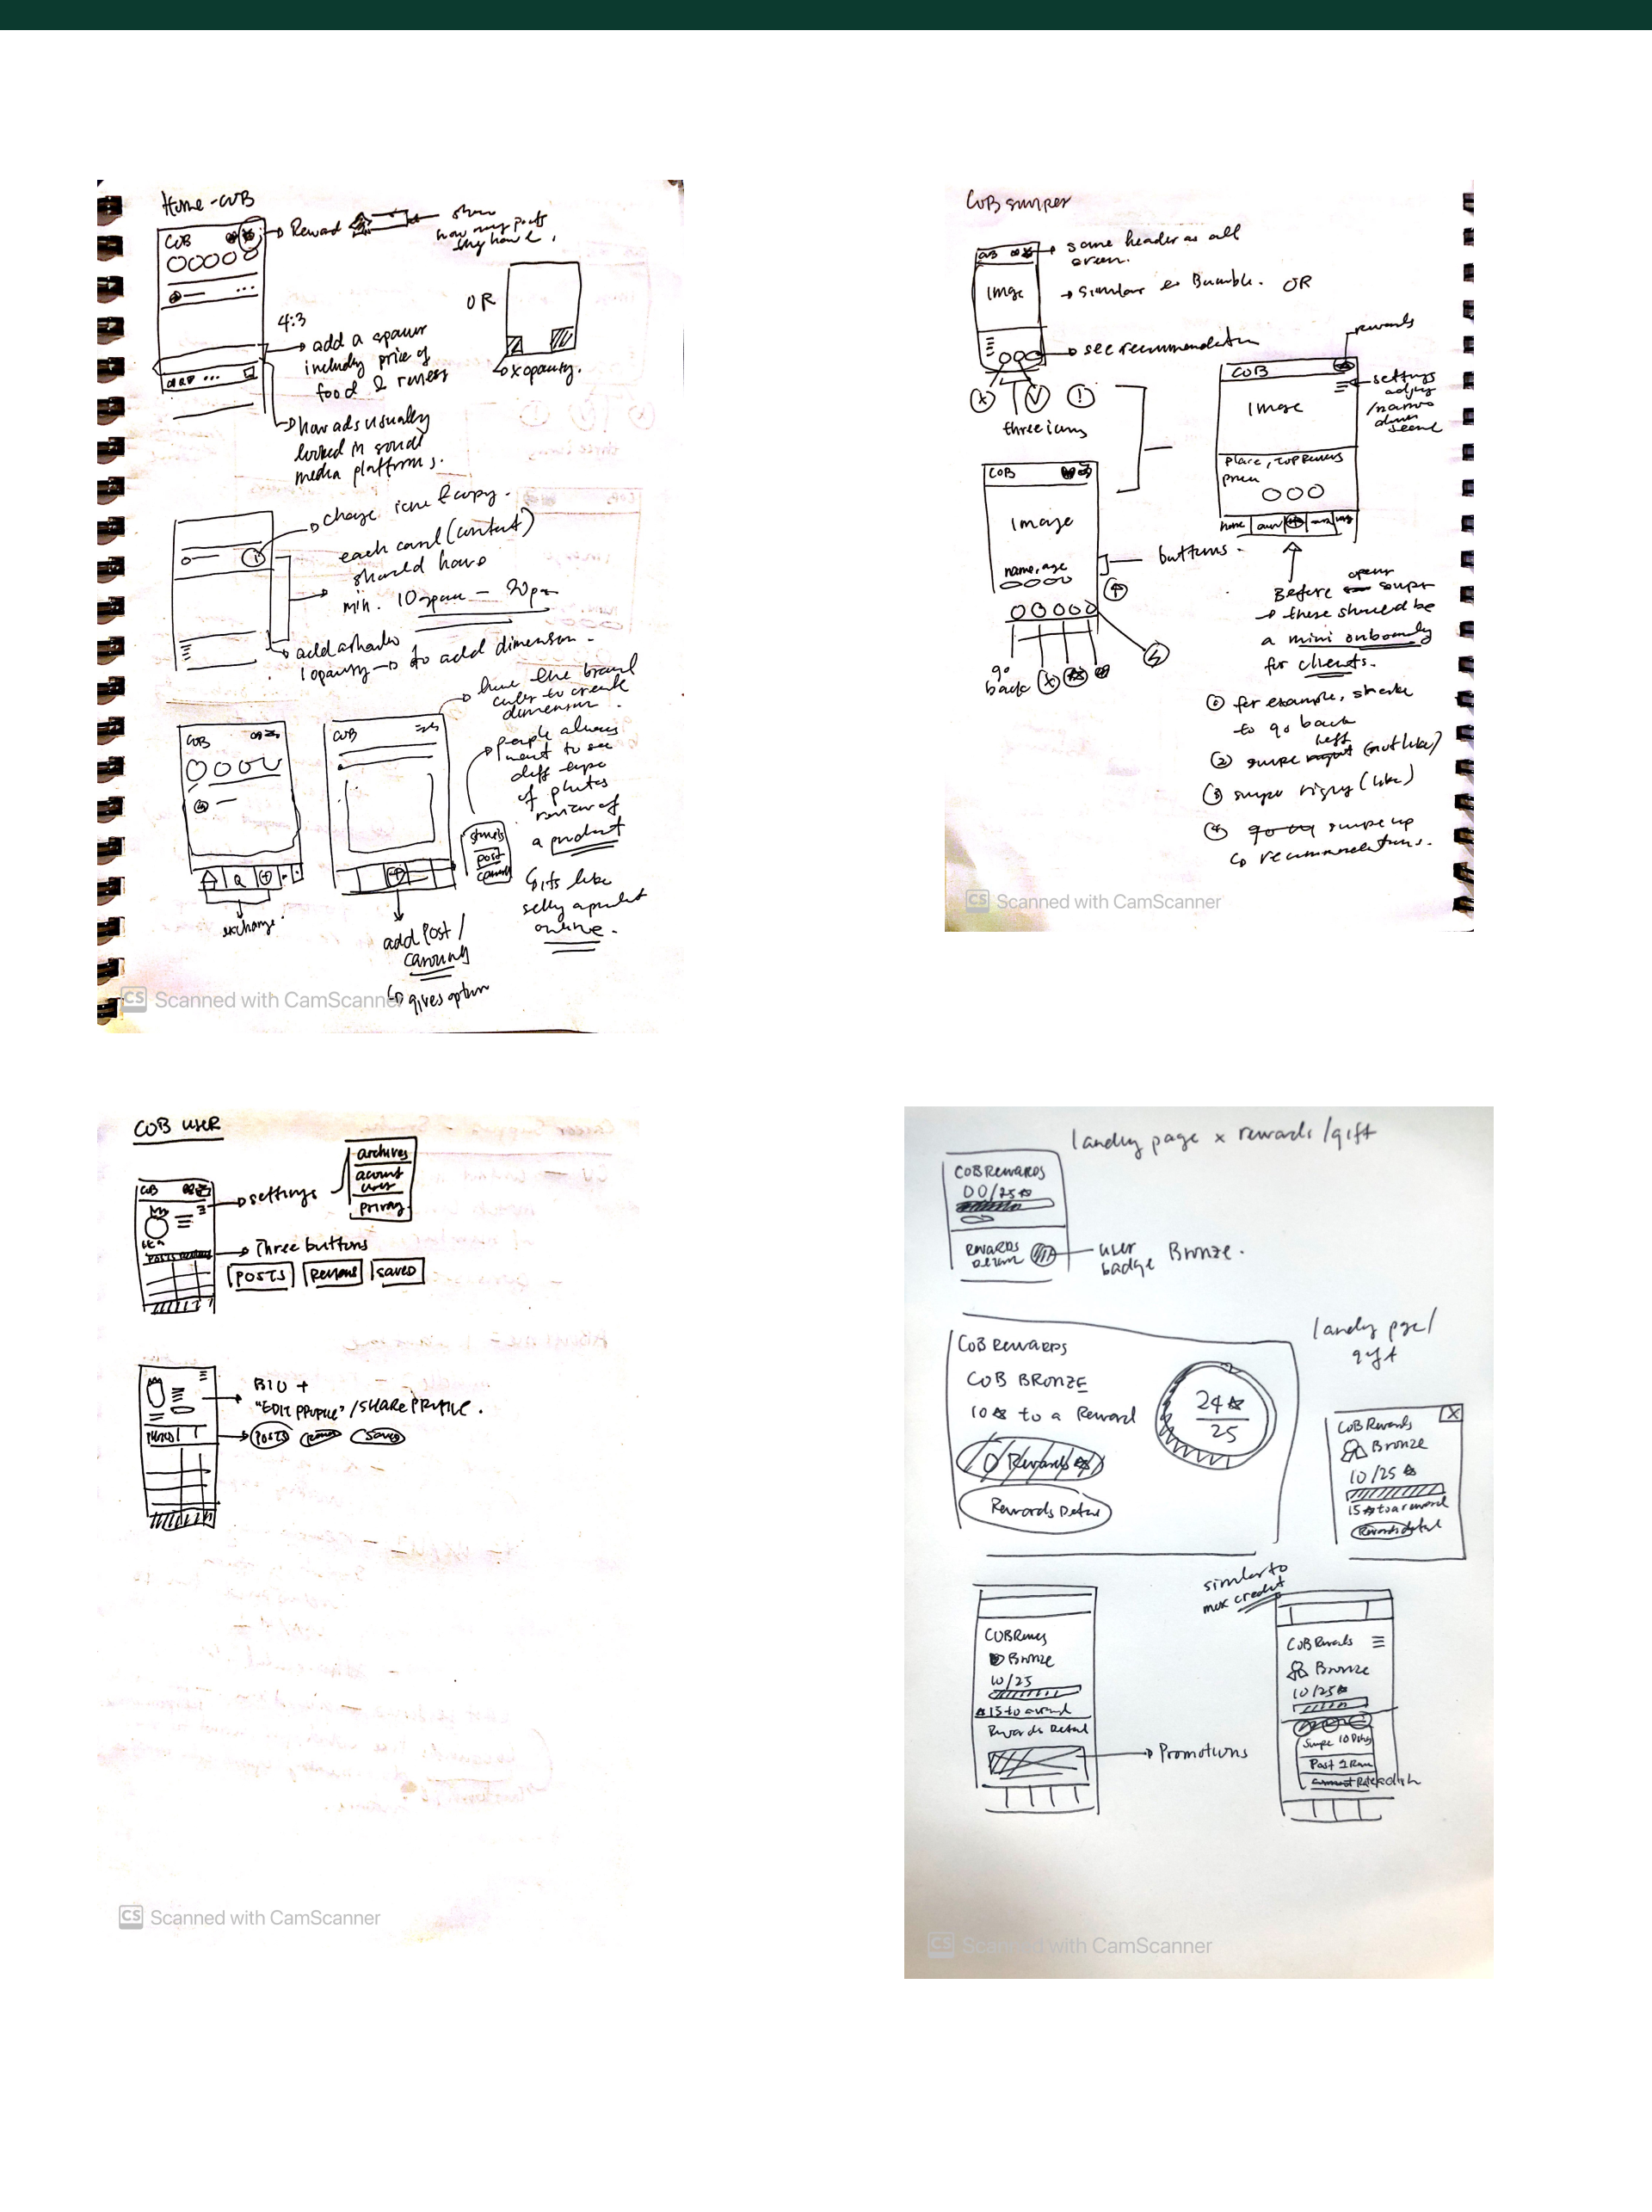 Home - COB
COB
Reward
show
how many posts
they have.
OR
4:3
add a spacer
including price of
food & reviews
x opacity.
how ads usually
looked in social
media platforms.
change icon & copy.
each card (content)
should have
min. 10 space - 20px
add a shadow
opacity → to add dimension.
have the brand
color to create
dimension.
COB
COB
people always
want to see
diff type
of photos
review of
a product
its like
selling a product
online.
post
exchange.
add post /
gives option
CS Scanned with CamScanner
COB swiper
COB
same header as all
screen.
Image
→ similar to Bumble. OR
→ see recommendation
three icons
rewards
COB
Image
settings
place, top reviews
price
home
COB
Image
name, age
buttons.
go
back
Before open swiper
→ there should be
a mini onboarding
for clients.
① for example, shake
to go back
② swipe left (not like)
③ swipe right (like)
④ swipe up
↳ recommendations.
CS Scanned with CamScanner
COB USER
archives
account
privacy
COB
settings
Three buttons
POSTS
Reviews
SAVED
BIO +
"EDIT PROFILE" / SHARE PROFILE.
POSTS
Saved
CS Scanned with CamScanner
landing page x rewards /gift
COB REWARDS
00/25
REWARDS
user
badge
Bronze.
COB REWARDS
COB BRONZE
10 ☆ to a Reward
24 ☆
25
Rewards
Rewards Detail
landing page/
gift
COB Rewards
X
Bronze
10/25
15 ☆ to a reward
Rewards detail
similar to
max credit
Bronze
10/25
15 to a reward
Rewards Detail
Promotions
COB Rewards
Bronze
10/25
Swipe 10
Post 2
CS Scanned with CamScanner